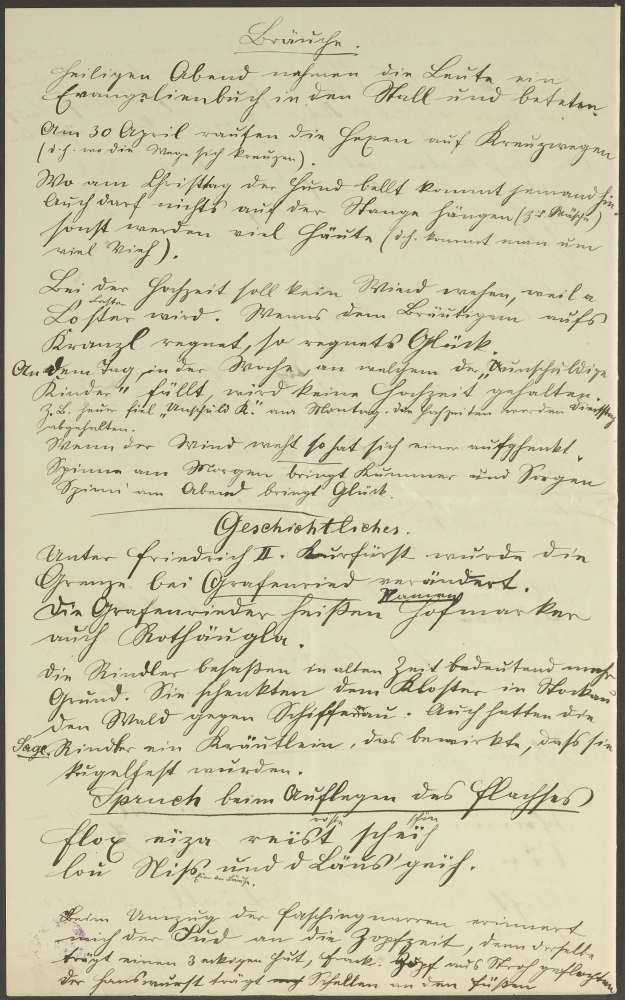 Bräuche.
Heiligen Abend nahmen die Leute ein
Evangelienbuch in den Stall und beteten.
Am 30 April raufen die Hexen auf Kreuzwegen
(d.h. wo die Wege sich kreuzen).
Wo am Christtag der Hund bellt kommt jemand hin.
Auch darf nichts auf der Stange hängen (z.B. Wäsche)
sonst werden viel Häute (d.h. kommt man um
viel Vieh).
Bei der Hochzeit soll kein Wind wehen, weil a
Laster
Loster wird. Wenns dem Bräutigam aufs
Kranzl regnet, so regnets Glück
An dem Tag in der Woche an welchem der "Unschuldige
Kinder" fällt wird keine Hochzeit gehalten.
Z.B. heuer fiel "Unschuld K." am Montag. die Hochzeiten werden Dienstag
abgehalten.
Wenn der Wind weht so hat sich einer aufghenkt.
Spinne am Morgen bringt Kummer und Sorgen
Spinni am Abend bringt Glück.
Geschichtliches.
Unter Friedrich II. Kurfürst wurde die
Grenze bei Grafenried verändert.
Die Grafenrieder heißen Hofmarker
auch Rothäugla.
Die Rindler besaßen in alten Zeit bedeutend mehr
Grund. Sie schenkten dem Kloster in Stockau
den Wald gegen Schiffernau. Auch hatten die
Sage. Rindler ein Kräutlein, das bewirkte, dass sie
kugelfest wurden.
Spruch beim Auflegen des Flachses
Flox
lou Niss und d Läus' gäih.
Beim Umzug der Faschingnarren erinnert
mich der Jud an die Zopfzeit, denn derselbe
trägt einen 3 eckigen Hut, Frack. Zopf aus Stroh geflochten
Der Hanswurst trägt Schellen an den Füßen